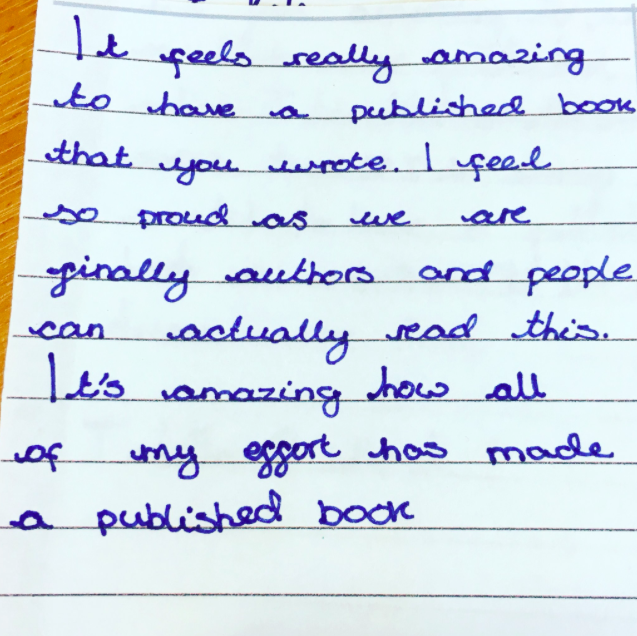 It feels really amazing
to have a published book
that you wrote. I feel
so proud as we are
finally authors and people
can actually read this.
It's amazing how all
of my effort has made
a published book